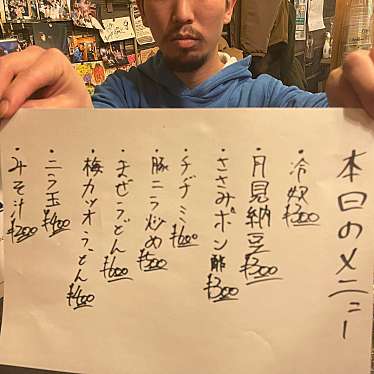 本日のメニュー
・冷奴 ¥200
・月見納豆 ¥300
・ささみポン酢 ¥300
・チヂミ ¥600
・豚ニラ炒め ¥500
・まぜうどん ¥600
・梅カツオうどん ¥600
・ニラ玉 ¥400
・みそ汁 ¥200